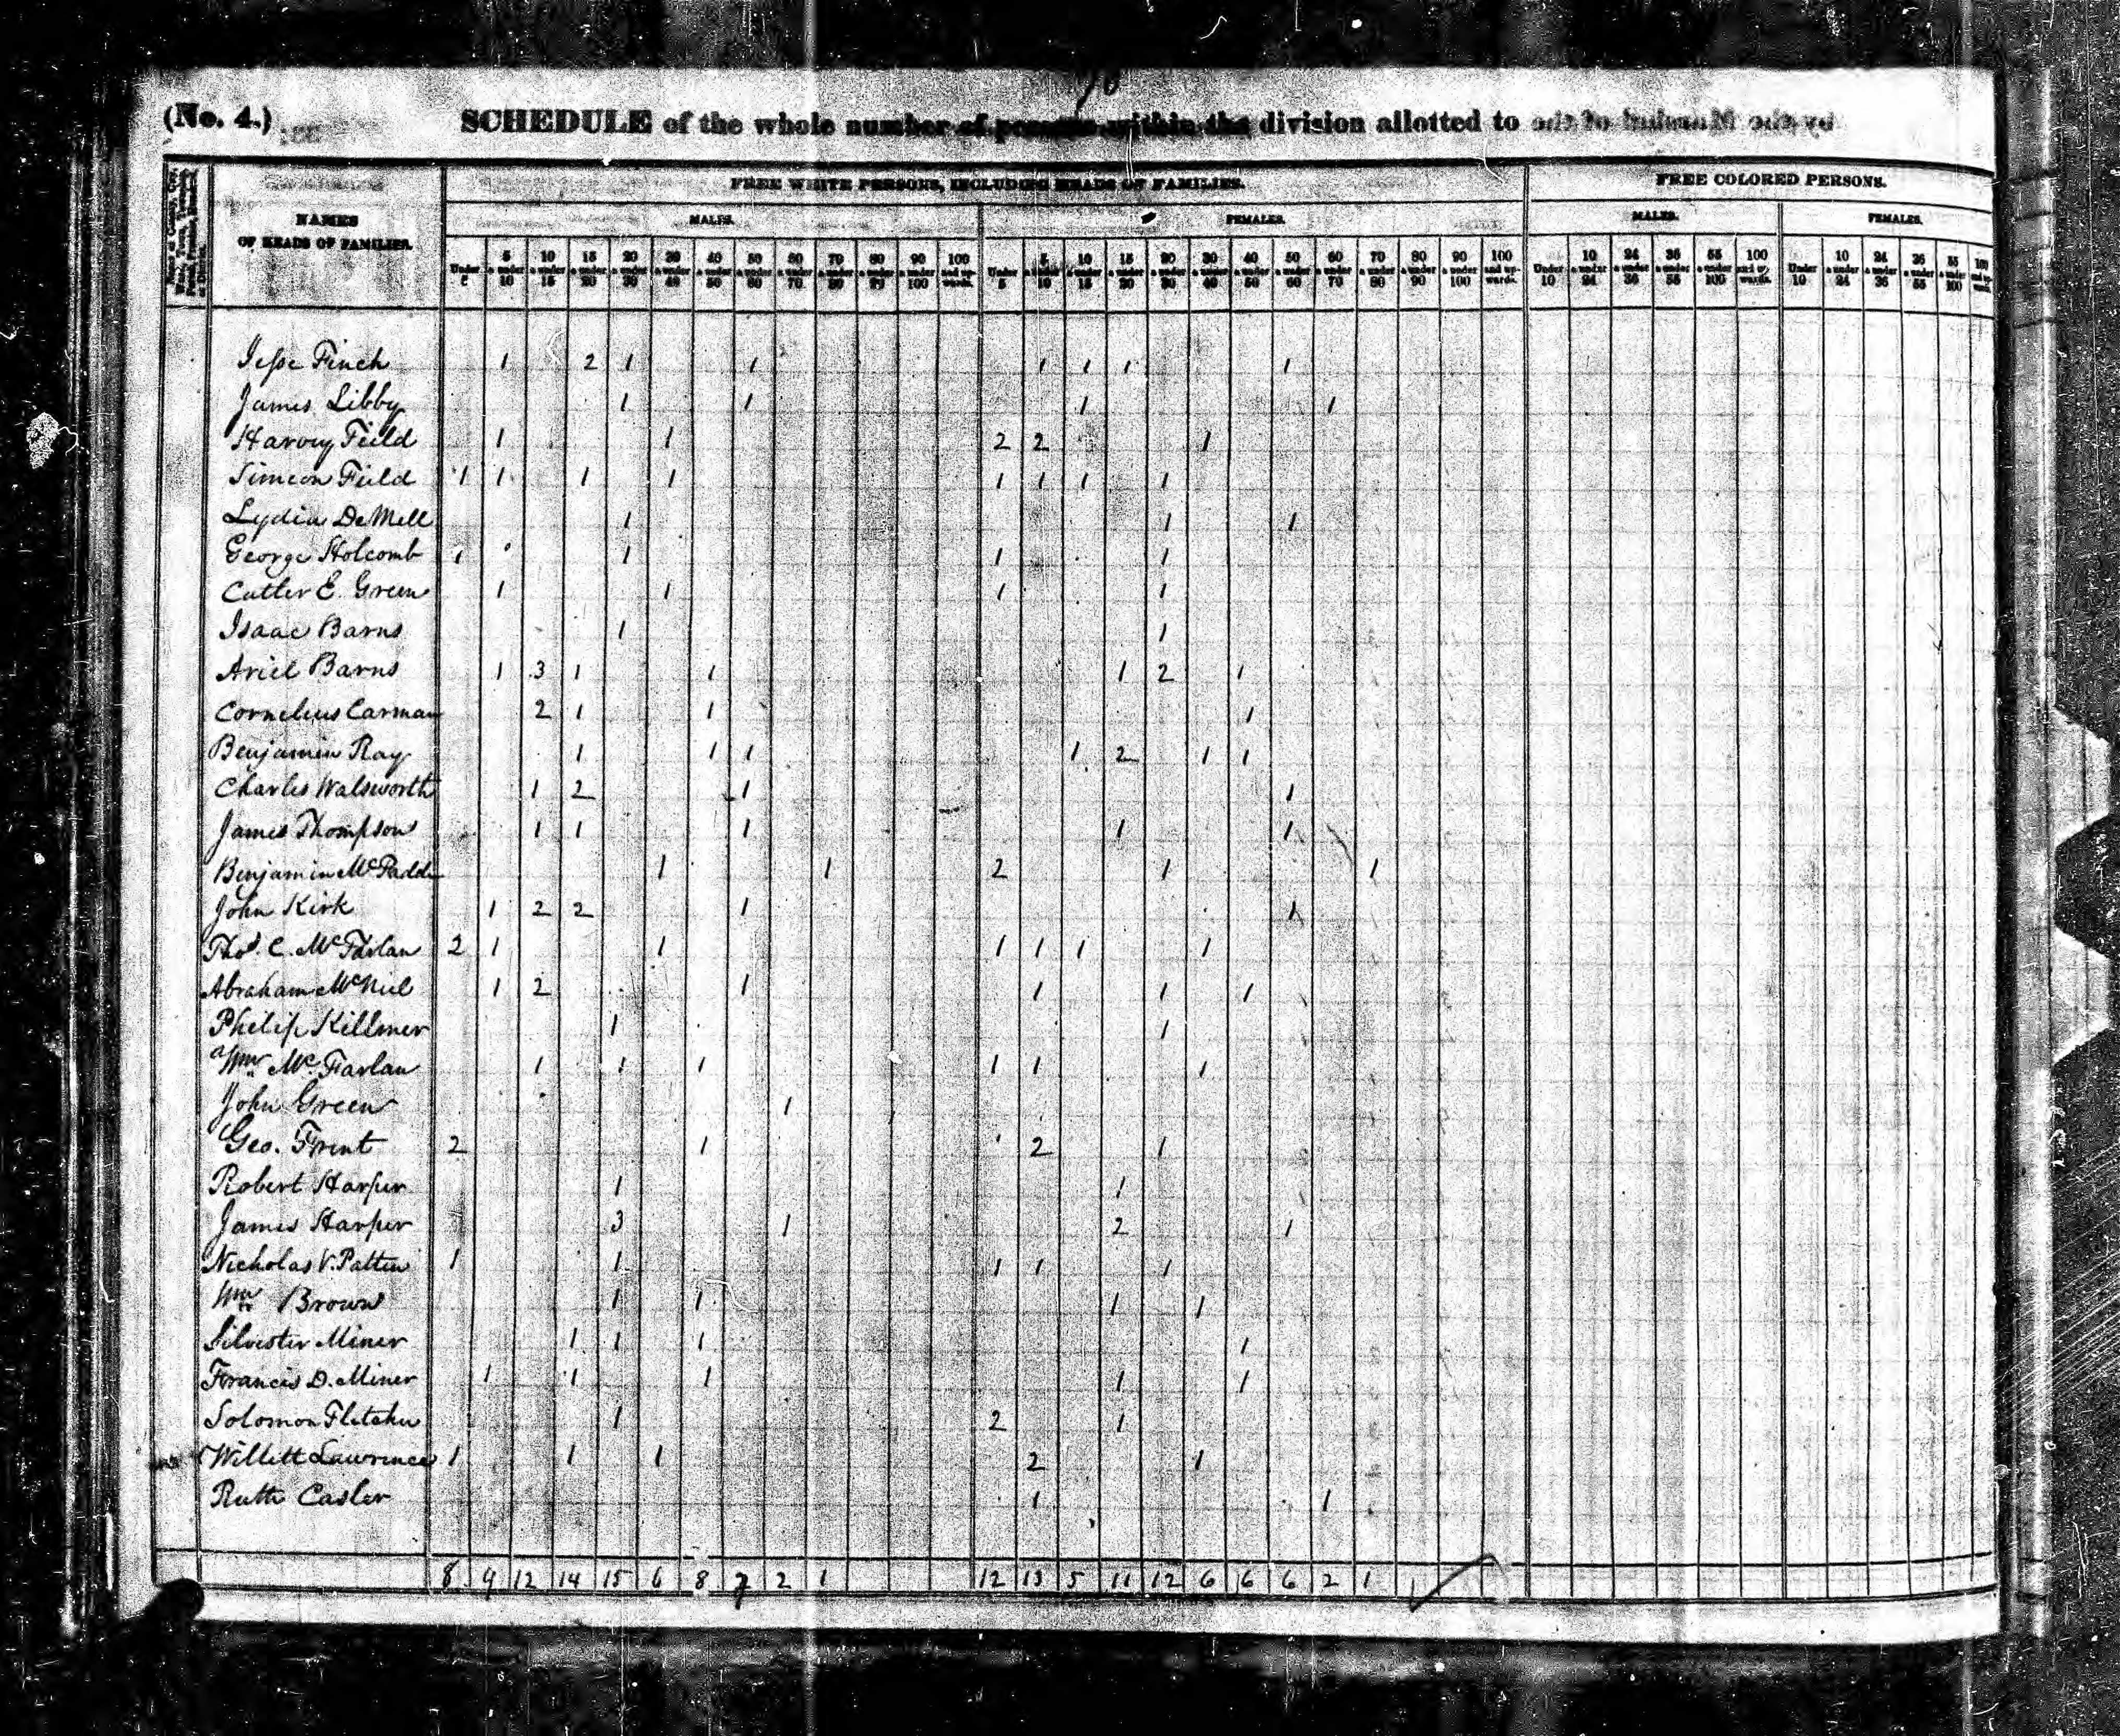 70
(No. 4.) SCHEDULE of the whole number of persons within the division allotted to by the Marshal of the
NAMES
OF HEADS OF FAMILIES.
FREE WHITE PERSONS, INCLUDING HEADS OF FAMILIES.
FREE COLORED PERSONS.
MALES. FEMALES. MALES. FEMALES.
Under 5 5 & under 10 10 & under 15 15 & under 20 20 & under 30 30 & under 40 40 & under 50 50 & under 60 60 & under 70 70 & under 80 80 & under 90 90 & under 100 100 and upwards. Under 5 5 & under 10 10 & under 15 15 & under 20 20 & under 30 30 & under 40 40 & under 50 50 & under 60 60 & under 70 70 & under 80 80 & under 90 90 & under 100 100 and upwards. Under 10 10 & under 24 24 & under 36 36 & under 55 55 & under 100 100 and upwards. Under 10 10 & under 24 24 & under 36 36 & under 55 55 & under 100 100 and upwards.
Jesse Finch 1 2 1 1 1 1 1 1
James Libby 1 1 1 1
Harvey Feild 1 1 2 2 1
Simeon Feild 1 1 1 1 1 1 1 1
Lydia DeMell 1 1 1
George Holcomb 1 1 1 1
Cutler E. Green 1 1 1 1
Isaac Barns 1 1
Ariel Barns 1 3 1 1 1 2 1
Cornelius Carman 2 1 1 1
Benjamin Ray 1 1 1 1 2 1 1
Charles Walsworth 1 2 1 1
James Thompson 1 1 1 1 1
Benjamin McPadd 1 1 2 1 1
John Kirk 1 2 2 1 1
Thos. C. McFarlan 2 1 1 1 1 1 1
Abraham McNiel 1 2 1 1 1 1
Philip Killmer 1 1
Wm McFarlan 1 1 1 1 1 1
John Green 1
Geo. Trent 2 1 2 1
Robert Harper 1 1
James Harper 3 1 2 1
Nicholas V. Patten 1 1 1 1 1
Wm Brown 1 1 1 1
Silvester Miner 1 1 1 1
Francis D. Miner 1 1 1 1 1
Solomon Fletcher 1 2 1
Willett Lawrence 1 1 1 2 1
Ruth Casler 1 1
8 9 12 14 15 6 8 7 2 1 12 13 5 11 12 6 6 6 2 1